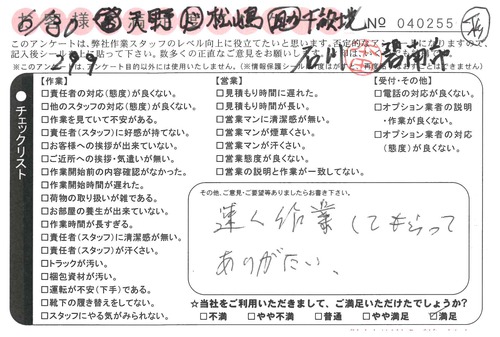 お客様 天野 松崎
№ 040255
このアンケートは、弊社作業スタッフのレベル向上に役立てたいと思います。否定的なアンケートになりますので、
記入後シールを貼って下さい。数多くの正直なご意見をお聞かせ下さい。
29.9
※このアンケートは、アンケート目的以外には使用いたしません。
湘南
チェックリスト
【作業】
□責任者の対応(態度)が良くない。
□他のスタッフの対応(態度)が良くない。
□作業を見ていて不安がある。
□責任者(スタッフ)に好感が持てない。
□お客様への挨拶が出来ていない。
□ご近所への挨拶・気遣いが無い。
□作業開始前の内容確認がなかった。
□作業開始時間が遅れた。
□荷物の取り扱いが雑である。
□お部屋の養生が出来ていない。
□作業時間が長すぎる。
□責任者(スタッフ)に清潔感が無い。
□責任者(スタッフ)が汗くさい。
□トラックが汚い。
□梱包資材が汚い。
□運転が不安(下手)である。
□靴下の履き替えをしてない。
□スタッフにやる気がみられない。
【営業】
□見積もり時間に遅れた。
□見積もり時間が長い。
□営業マンに清潔感が無い。
□営業マンが煙草くさい。
□営業マンが汗くさい。
□営業態度が良くない。
□営業の説明と作業が一致してない。
【受付・その他】
□電話の対応が良くない。
□オプション業者の説明
・作業が良くない。
□オプション業者の対応
(態度)が良くない。
その他、ご意見・ご要望等ありましたらお書き下さい。
速く作業してもらって
ありがたい、
☆当社をご利用いただきまして、ご満足いただけたでしょうか?
□不満 □やや不満 □普通 □やや満足 ☑満足